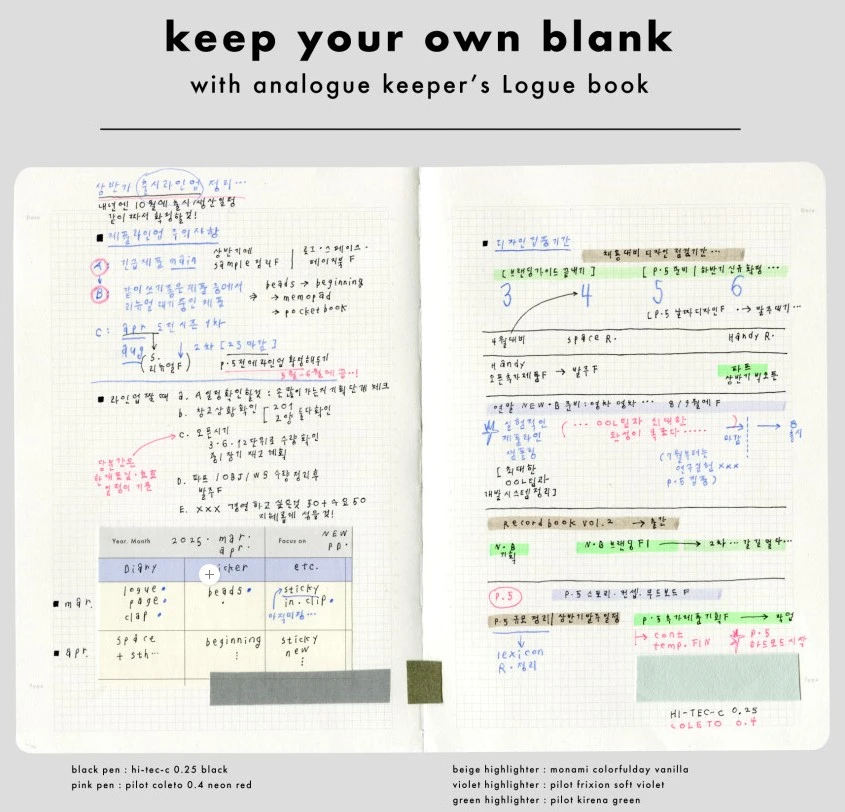 keep your own blank
with analogue keeper's Logue book
상반기 출시라인업 정리...
내년엔 10월에 출시/생산일정
같이 짜서 확정할것!
■ 제품라인업 주의사항
A: 긴급제품 main
상반기에
sample 정리F
로그·스페이스·
페이지북 F
B: 같이 쓰기 좋은 제품 중에서
리뉴얼 대기중인 제품
beads → beginning
→ memopad
→ pocketbook
C: apr 도전 시즌 1차
aug
(S. 리뉴얼F)
2차 [23 마감]
P.5 전에 라인업 확정해두기
■ 라인업 짤 때
a. A일정확인할것: 손 많이가는지 기획 단계 체크
b. 창고상황확인 [201 2양 둘다확인
C. 오픈시기
3·6·12단위로 수량 확인
중/장기 재고 계획
D. 파트 / OBJ / WS 수량 정리 후
발주F
Year. Month
2025. mar.
apr.
Focus on
NEW
PD.
Diary
icker
etc.
■ mar.
logue
page
clap
beads
sticky
in. clip
■ apr.
space
+ sth...
beginning
sticky
new
■ 디자인집중기간
제품대비 디자인 점검기간...
[브랜딩가이드 끝내기]
[P.5 준비 | 하반기 신규 확정...
3 4 5 6
[P.5 날짜디자인F → 발주대기...
4월대비
space R.
Handy R.
Handy
오픈추가제품F → 발주F
파트
상반기 빅오픈
연말 NEW·B 준비: 영차 영차... 8/9월에F
실험적인
제품라인
샘플링
(... OOL입자 최대한
완성이 목표다......)
마감
B
출시
(7월부터는
연구실험 xxx
P.5 집중)
[최대한
OOL입자
개발시스템정리]
Record book vol. 2 → 출간
N·B
기획
N·B 브랜딩F1 → 2차...
P.5
P.5 스토리·컨셉·무드보드F
P.5 규모 정리 / 상반기발주일정
P.5 추가제품기획F → 작업
lexicon
R. 정리
cont
temp. FIN
P.5
하드모드시작
HI-TEC-C 0.25
COLETO 0.4
black pen : hi-tec-c 0.25 black
pink pen : pilot coleto 0.4 neon red
beige highlighter : monami colorfulday vanilla
violet highlighter : pilot frixion soft violet
green highlighter : pilot kirena green